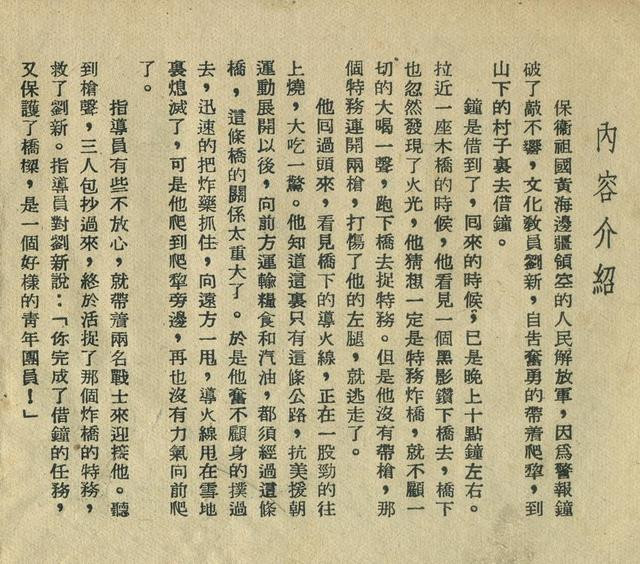 內容介紹
保衛祖國黃海邊疆領空的人民解放軍，因爲警報鐘
破了敲不響，文化教員劉新，自告奮勇的帶着爬犂，到
山下的村子裏去借鐘。
鐘是借到了，囘來的時候，已是晚上十點鐘左右。
拉近一座木橋的時候，他看見一個黑影鑽下橋去，橋下
也忽然發現了火光，他猜想一定是特務炸橋，就不顧一
切的大喝一聲，跑下橋去捉特務。但是他沒有帶槍，那
個特務連開兩槍，打傷了他的左腿，就逃走了。
他囘過頭來，看見橋下的導火線，正在一股勁的往
上燒，大吃一驚。他知道這裏只有這條公路，抗美援朝
運動展開以後，向前方運輸糧食和汽油，都須經過這條
橋，這條橋的關係太重大了。於是他奮不顧身的撲過
去，迅速的把炸藥抓住，向遠方一甩，導火線甩在雪地
裏熄滅了，可是他爬到爬犂旁邊，再也沒有力氣向前爬
了。
指導員有些不放心，就帶着兩名戰士來迎接他。聽
到槍聲，三人包抄過來，終於活捉了那個炸橋的特務，
救了劉新。指導員對劉新說：「你完成了借鐘的任務，
又保護了橋樑，是一個好樣的青年團員！」